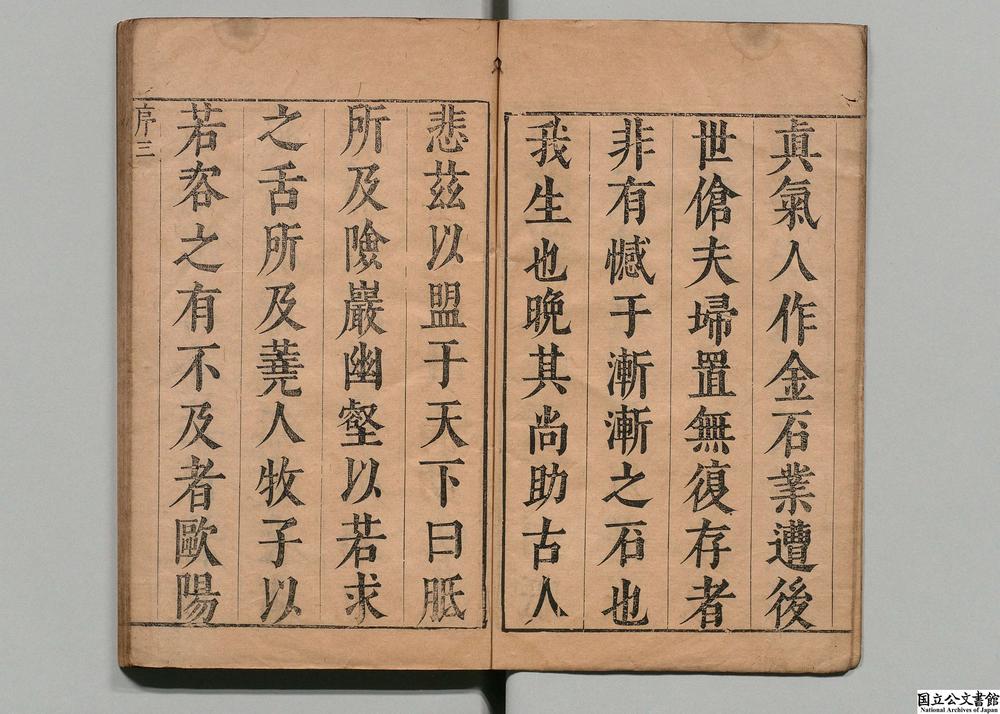 真氣人作金石業遭後
世傖夫埽置無復存者
非有憾于漸漸之石也
我生也晚其尚助古人
悲茲以盟于天下曰胝
所及險巖幽壑以若求
之舌所及蕘人牧子以
若容之有不及者歐陽
序三
国立公文書館
National Archives of Japan